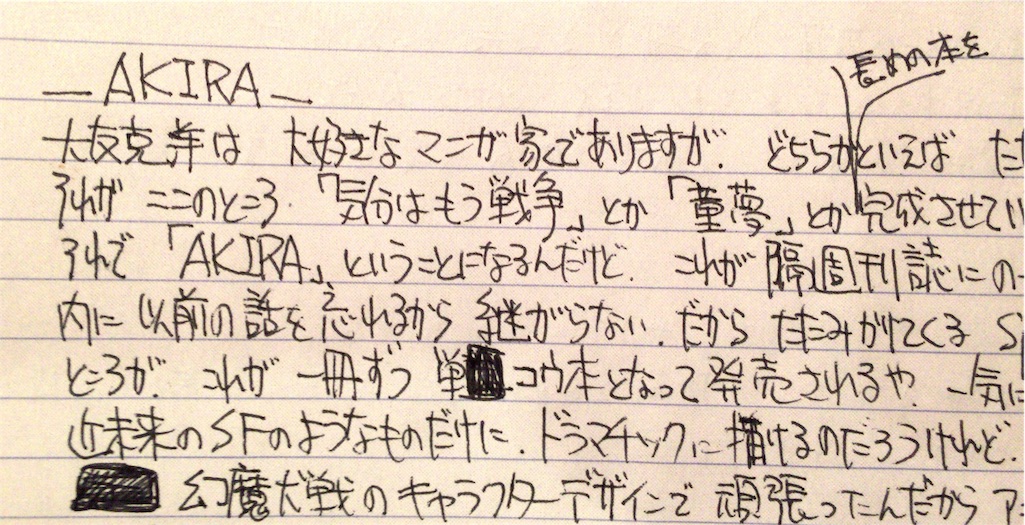 長めの本を
— AKIRA —
大友克洋は 大好きな マンガ家でありますが. どちらかといえば た
それが ここのところ. 「気分はもう戦争」とか 「童夢」とか 完成させてい
それで 「AKIRA」ということになるんだけど. これが 隔週刊誌にの
内に 以前の話を 忘れるから 継がらない. だから たたみかけてくる S
ところが. これが 一冊ずつ 単コウ本となって 発売されるや. 一気に
近未来のSFのようなものだけに. ドラマチックに 描けるのだろうけれど.
幻魔大戦の キャラクターデザインで 頑張ったんだから ア